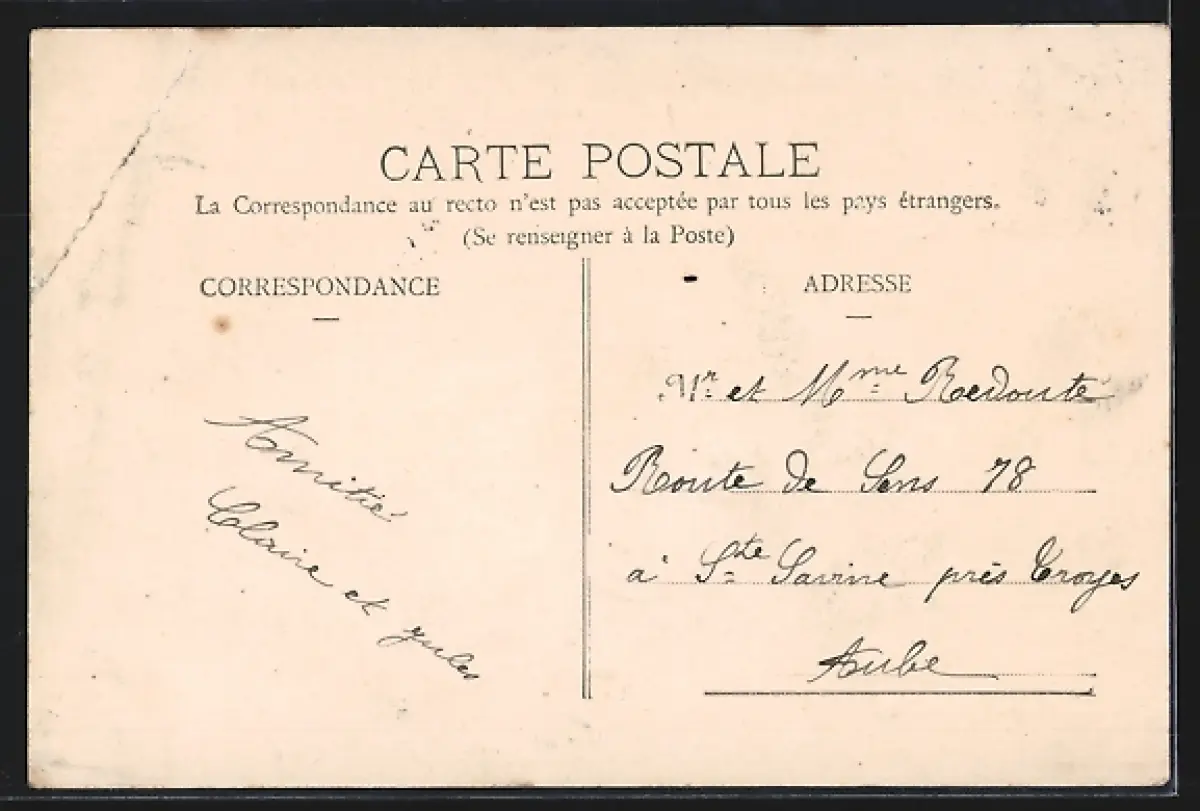 CARTE POSTALE
La Correspondance au recto n'est pas acceptée par tous les pays étrangers.
(Se renseigner à la Poste)
CORRESPONDANCE
Amitié
Claire et Jules
ADRESSE
Mr et Mme Redouté
Route de Sens 78
à Ste Savine près Troyes
Aube